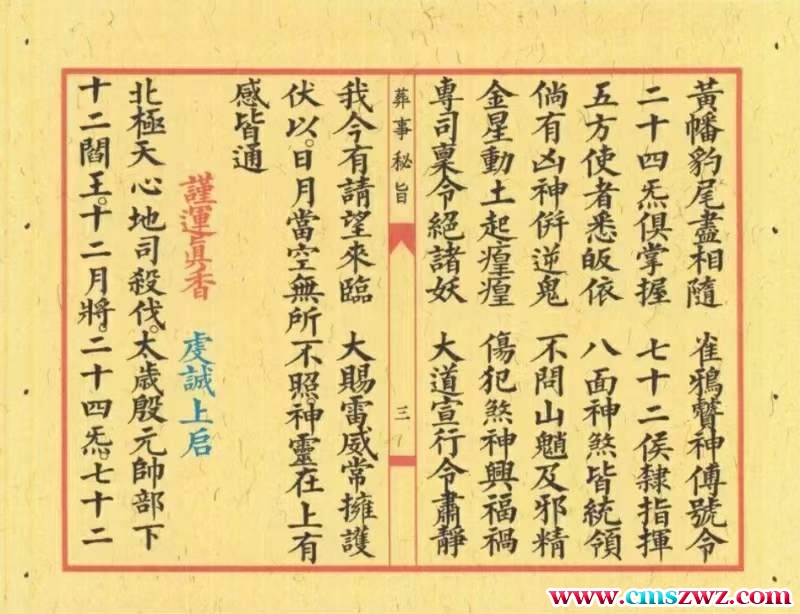 黃幡豹尾盡相隨　雀鴉聲神傳號令
二十四炁俱掌握　七十二侯隸指揮
五方使者悉皈依　八面神煞皆統領
倘有凶神併逆鬼　不問山魈及邪精
金星動土起瘟瘽　傷犯煞神興福禍
專司稟令絕諸妖　大道宣行令肅靜
葬事秘旨
三
我今有請望來臨　大賜雷威常擁護
伏以。日月當空無所不照。神靈在上有
感皆通
謹運眞香　虔誠上启
北極天心地司殺伐。太歲殷元帥部下
十二閻王。十二月將。二十四炁。七十二
www.cmszwz.com